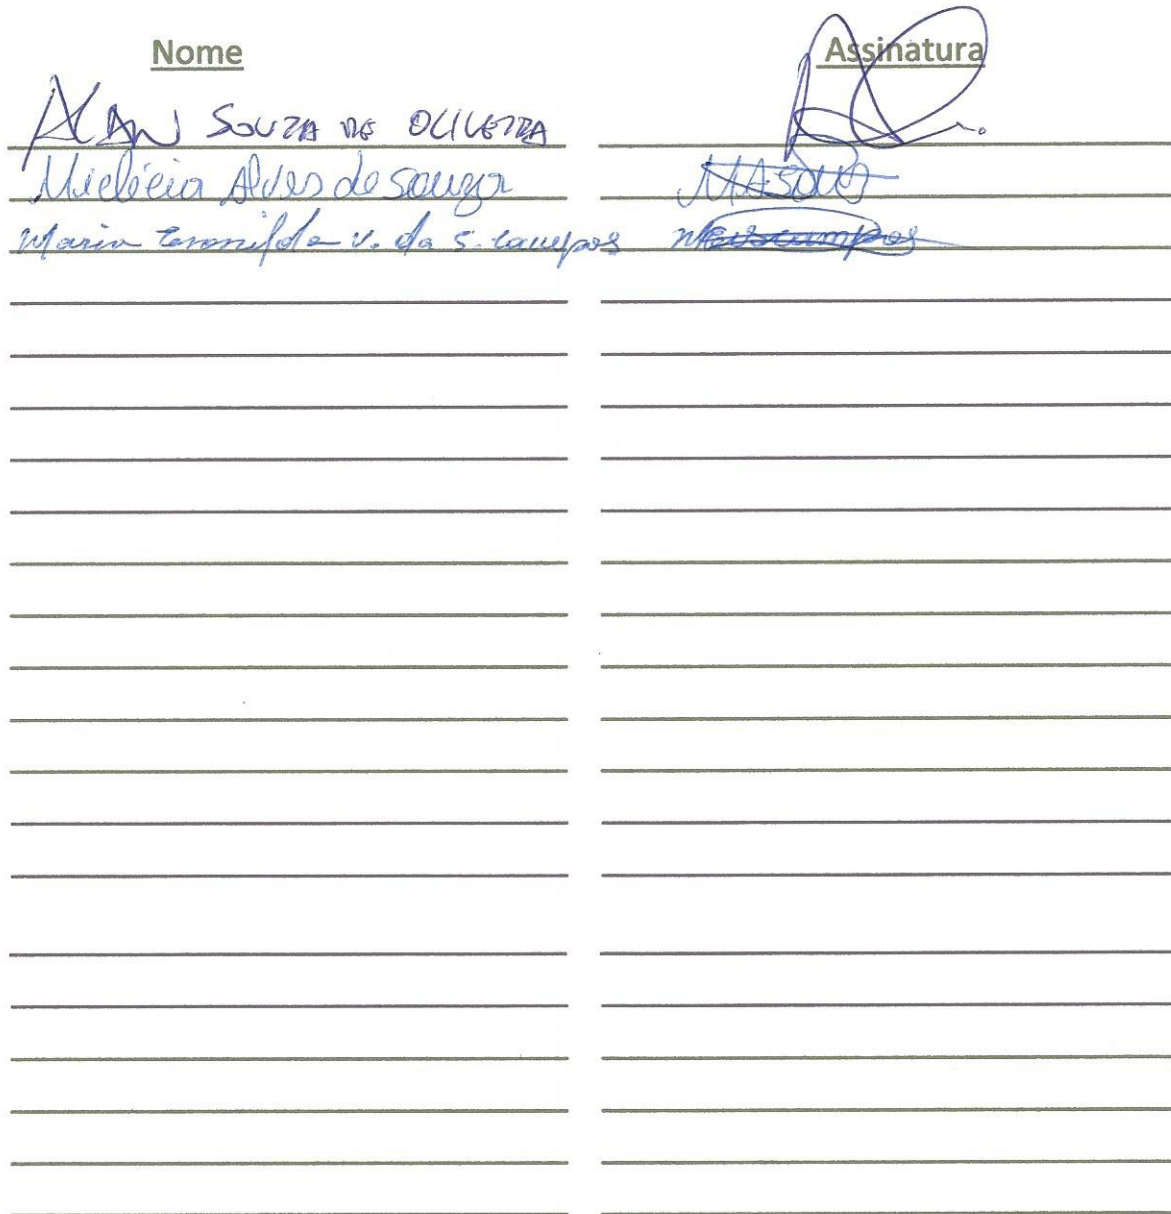 Nome Assinatura
ALAN SOUZA DE OLIVEIRA
Alves de Souza MASOUZ
Maria V. da S. Campos